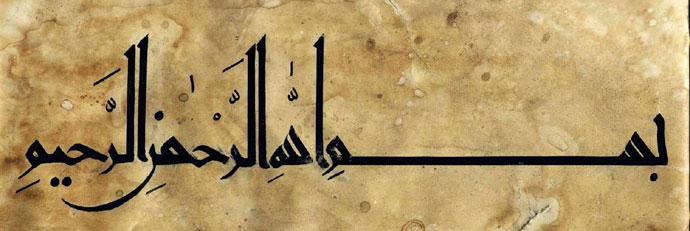 بسم اللّٰهِ الرَّحْمٰنِ الرَّحيمِ